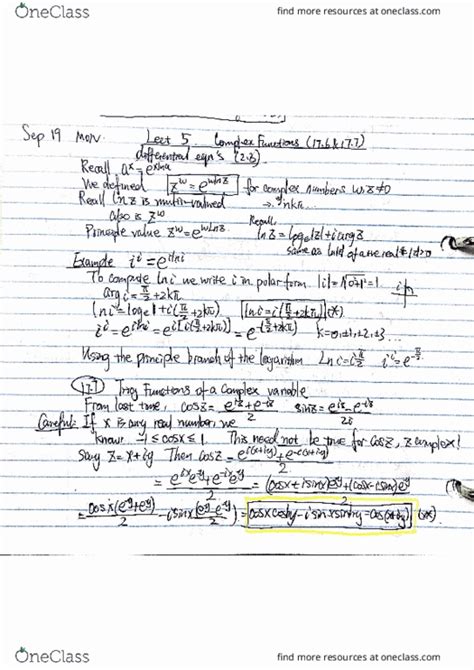 OneClass
find more resources at oneclass.com
Sep 19 Mon. Lect 5 Complex Functions (17.6 & 17.7)
differential eqn's (2.3)
Recall a^x = e^{xlna}
We defined z^w = e^{wlnz} for complex numbers w, z≠0
Recall ln z is multi-valued
also is z^w Recall
Principle value z^w = e^{wLnz} ln z = log_e|z| + i arg z
same as
Example i^i = e^{ilni}
To compute ln i we write i in polar form |i| = √0+1² = 1
arg i = π/2 + 2kπ
ln i = log_e 1 + i(π/2 + 2kπ) ln i = i(π/2 + 2kπ) (*)
i^i = e^{ilni} = e^{i[i(π/2+2kπ)]} = e^{-(π/2+2kπ)} k=0,±1,±2,±3...
Using the principle branch of the logarithm Ln i = iπ/2 i^i = e^{-π/2}
17.7 Trig Functions of a Complex variable
From last time, cosz = e^{iz}+e^{-iz}/2 sinz = e^{iz}-e^{-iz}/2i
Careful: If x is any real number, we
know -1 ≤ cosx ≤ 1. This need not be true for cosz, z complex!
Say z = x+iy Then cosz = e^{i(x+iy)}+e^{-i(x+iy)}/2
= e^{ix}e^{-y}+e^{-ix}e^{y}/2 = (cosx+isinx)e^{-y}+(cosx-isinx)e^{y}/2
= cosx(e^{y}+e^{-y})/2 - isinx(e^{y}-e^{-y}/2) = cosxcoshy - isinxsinhy = cos(x+iy) (**)
OneClass
find more resources at oneclass.com